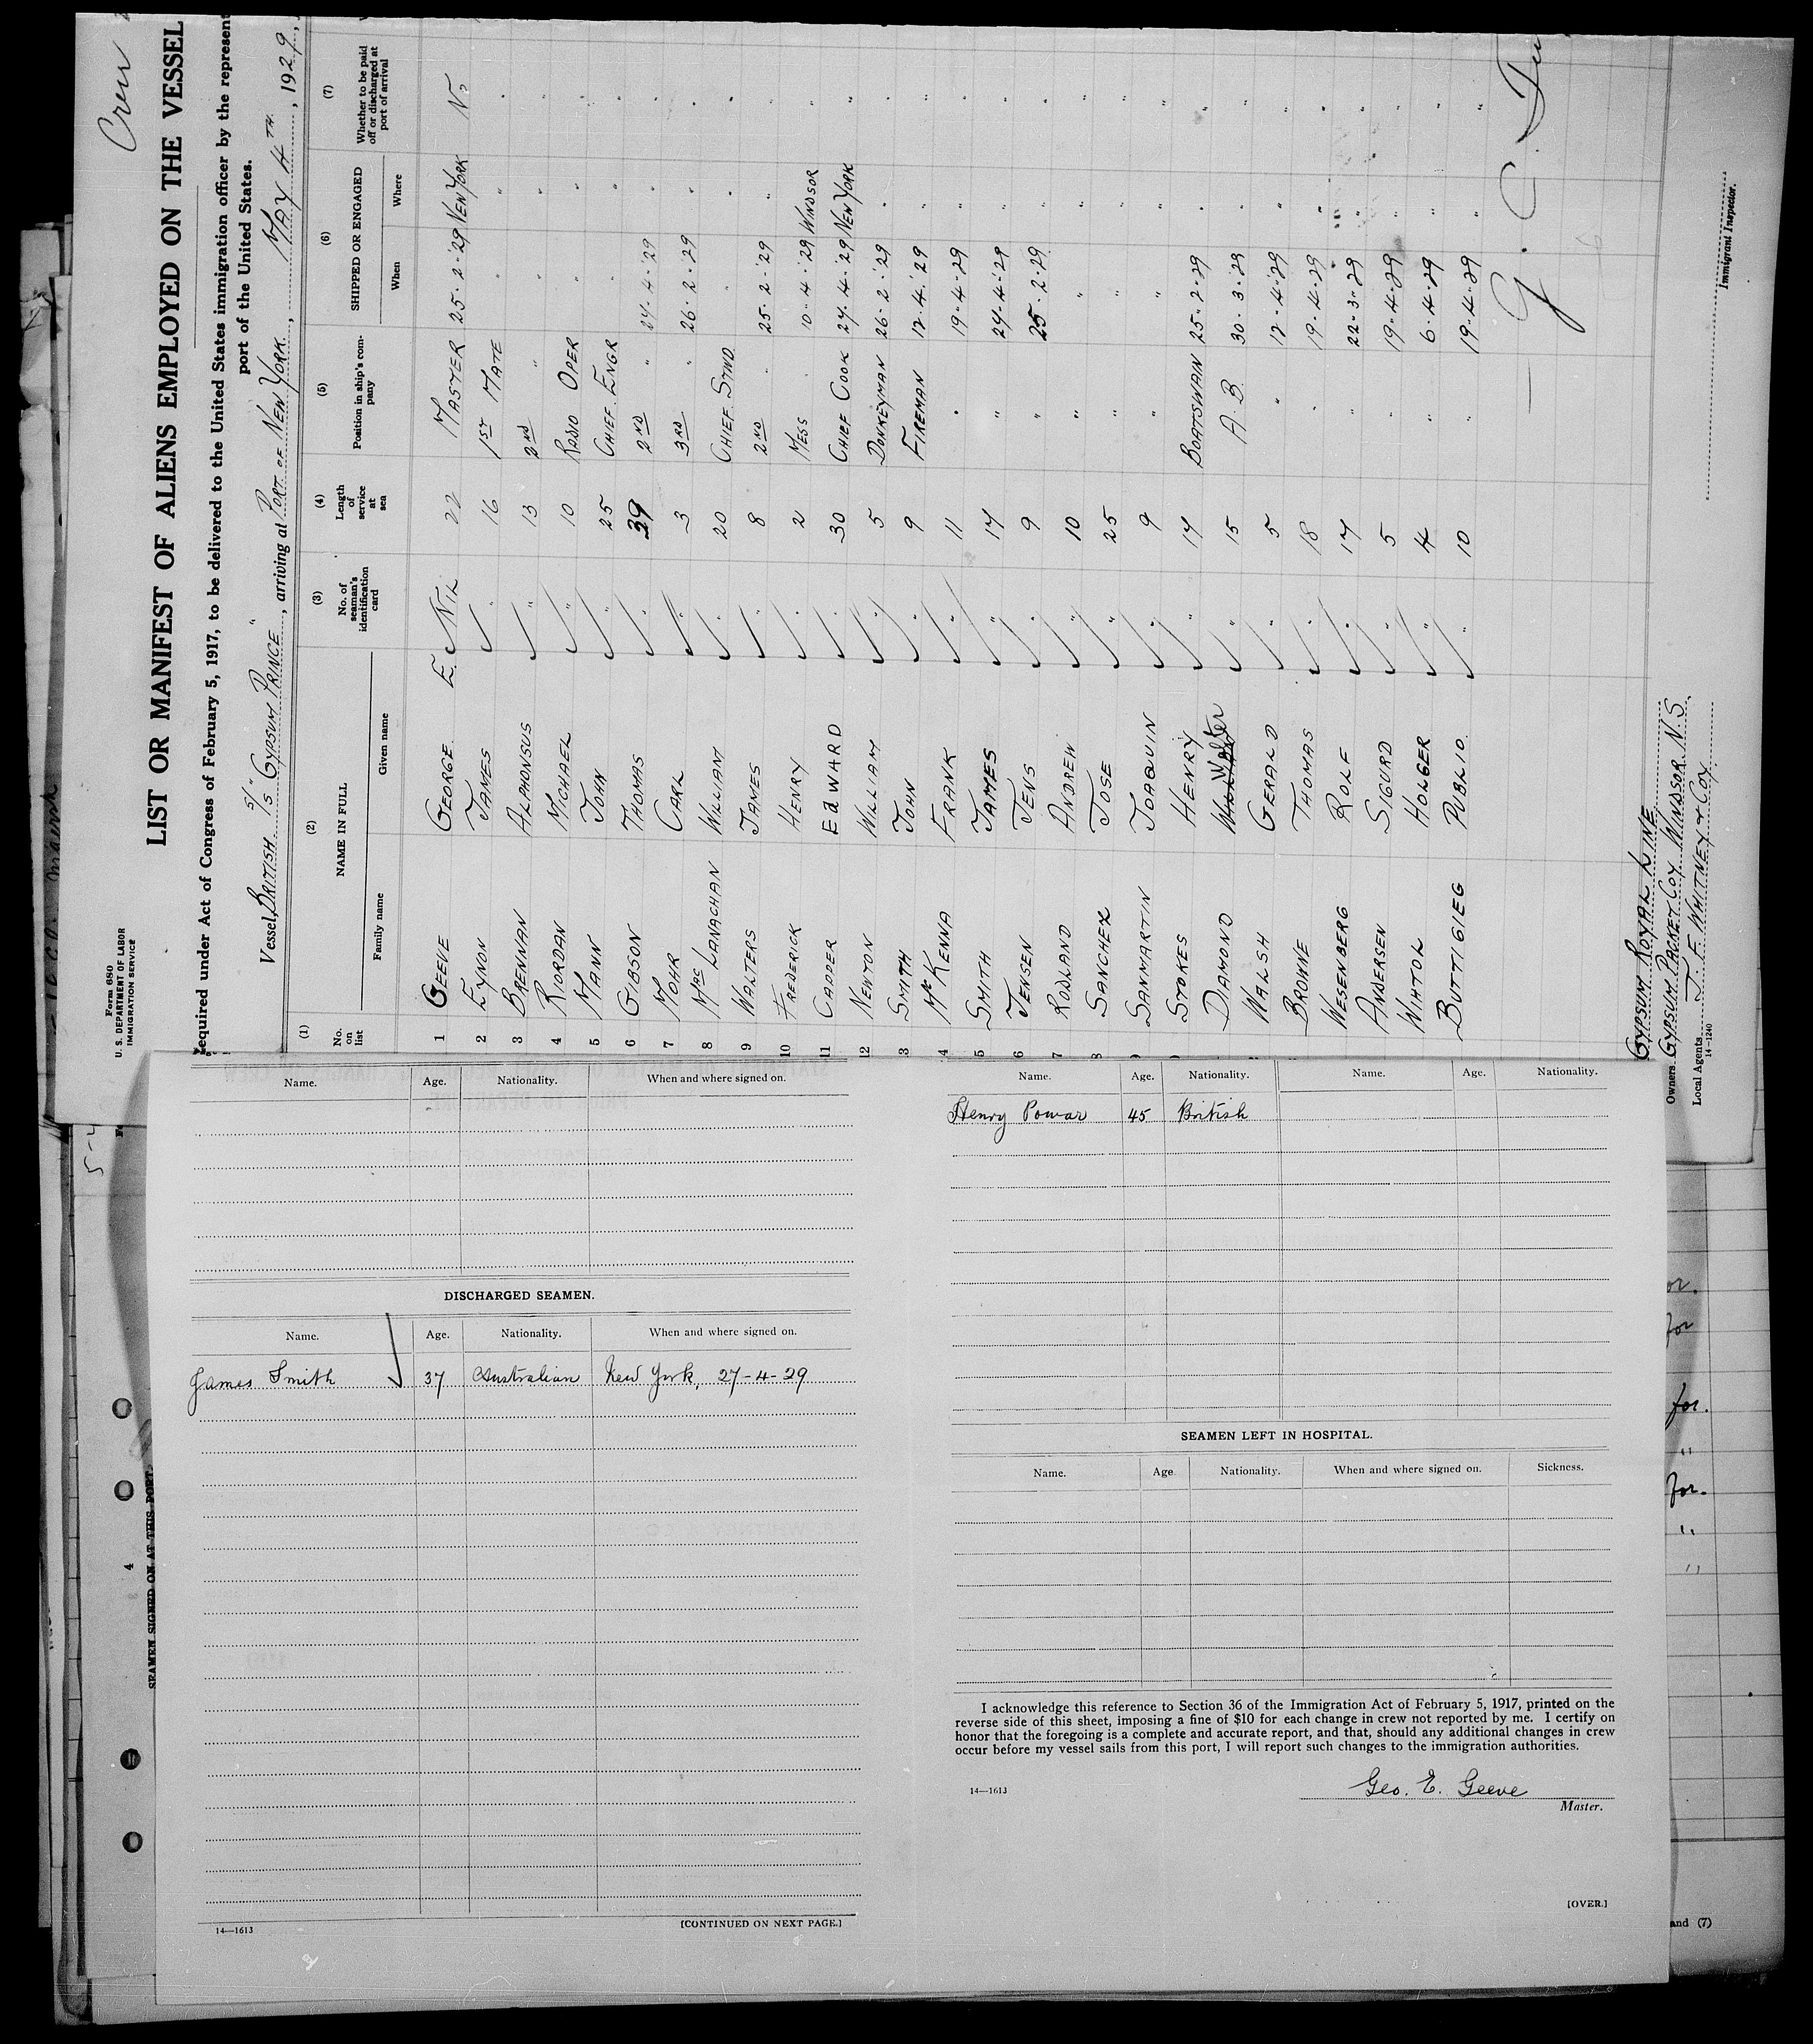 Crew
Form 680
U. S. DEPARTMENT OF LABOR
IMMIGRATION SERVICE
LIST OR MANIFEST OF ALIENS EMPLOYED ON THE VESSEL
equired under Act of Congress of February 5, 1917, to be delivered to the United States immigration officer by the represent
port of the United States.
Vessel BRITISH S/S "GYPSUM PRINCE", arriving at PORT OF NEW YORK, MAY 4TH, 1929,
(1) (2) (3) (4) (5) (6) (7)
No. on list NAME IN FULL No. of seaman's identification card Length of service at sea Position in ship's company SHIPPED OR ENGAGED Whether to be paid off or discharged at port of arrival
Family name Given name When Where
1 GEEVE GEORGE E. NIL 22 MASTER 25.2.'29 NEW YORK No
2 EYNON JAMES " 16 1ST MATE " " "
3 BRENNAN ALPHONSUS " 13 2ND " " " "
4 RIORDAN MICHAEL " 10 RADIO OPER " " "
5 MANN JOHN " 25 CHIEF ENGR " " "
6 GIBSON THOMAS " 39 2ND " 24.4.'29 " "
7 MOHR CARL " 3 3RD " 26.2.'29 " "
8 MAC LANACHAN WILLIAM " 20 CHIEF STWD. " " "
9 WALTERS JAMES " 8 2ND " 25.2.'29 " "
10 FREDERICK HENRY " 2 MESS " 10.4.'29 WINDSOR "
11 CAPPER EdWARD " 30 CHIEF COOK 24.4.'29 NEW YORK "
12 NEWTON WILLIAM " 5 DONKEYMAN 26.2.'29 " "
3 SMITH JOHN " 9 FIREMAN 12.4.'29 " "
4 McKENNA FRANK " 11 " 19.4.29 " "
5 SMITH JAMES " 17 " 27.4.'29 " "
6 JENSEN JENS " 9 " 25.2.29 " "
7 RODLAND ANDREW " 10 " " " "
8 SANCHEZ JOSE " 25 " " " "
9 SANMARTIN JOAQUIN " 9 " " " "
STOKES HENRY " 17 BOATSWAIN 25.2.29 " "
DIAMOND Walter " 15 A.B. 30.3.'29 " "
WALSH GERALD " 5 " 12.4.29 " "
BROWNE THOMAS " 18 " 19.4.29 " "
WESENBERG ROLF " 17 " 22.3.29 " "
ANDERSEN SIGURD " 5 " 19.4.29 " "
HOLGER " 4 " 6.4.29 " "
BUTTIGIEG PUBLIO " 10 " 19.4.29 " "
GYPSUM ROYAL LINE
Owners GYPSUM PACKET COY WINDSOR N.S.
Local Agents J. F. WHITNEY & COY.
14-1240
Immigrant Inspector.
SEAMEN SIGNED ON AT THIS PORT.
4
Name. Age. Nationality. When and where signed on.
DISCHARGED SEAMEN.
Name. Age. Nationality. When and where signed on.
James Smith 37 Australian New York, 27-4-29
14—1613
[CONTINUED ON NEXT PAGE.]
Name. Age. Nationality. Name. Age. Nationality.
Henry Powar 45 British
SEAMEN LEFT IN HOSPITAL.
Name. Age. Nationality. When and where signed on. Sickness.
I acknowledge this reference to Section 36 of the Immigration Act of February 5, 1917, printed on the
reverse side of this sheet, imposing a fine of $10 for each change in crew not reported by me. I certify on
honor that the foregoing is a complete and accurate report, and that, should any additional changes in crew
occur before my vessel sails from this port, I will report such changes to the immigration authorities.
14—1613
Geo. E. Geeve
Master.
[OVER.]
for
for.
"
for.
"
"
and (7)